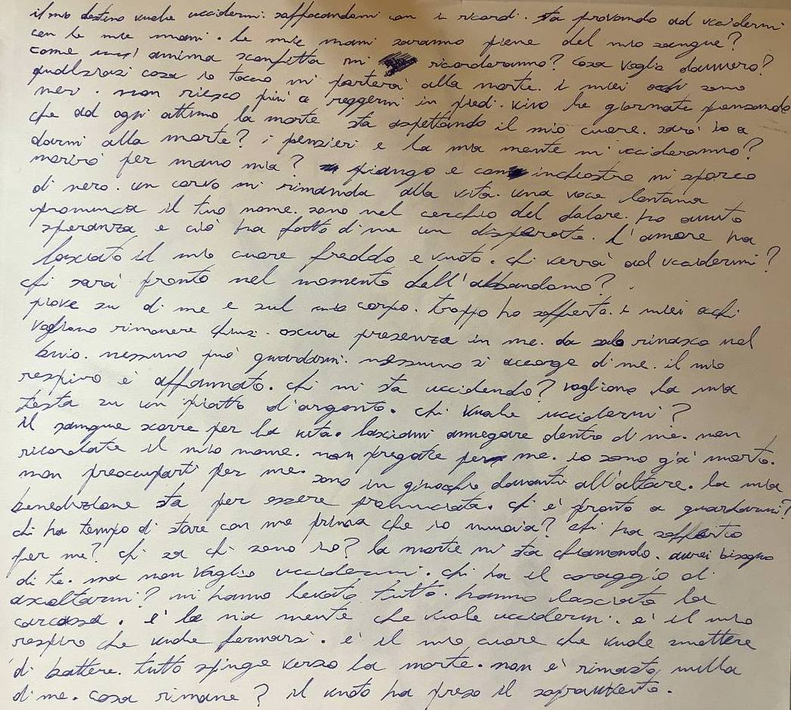 il mio destino vuole uccidermi. soffocandomi con i ricordi. sta provando ad uccidermi
con le mie mani. le mie mani saranno piene del mio sangue?
come un' anima sconfitta mi ricorderanno? cosa voglio davvero?
qualsiasi cosa io tocco mi porterà alla morte. i miei occhi sono
neri. non riesco più a reggermi in piedi. vivo le giornate pensando
che ad ogni attimo la morte sta aspettando il mio cuore. sarò io a
darmi alla morte? i pensieri e la mia mente mi uccideranno?
morirò per mano mia? piango e con inchiostro mi sporco
di nero. un corvo mi rimanda alla vita. una voce lontana
pronuncia il tuo nome. sono nel cerchio del dolore. ho avuto
speranza e ciò ha fatto di me un disperato. l'amore ha
lasciato il mio cuore freddo e vuoto. chi verrà ad uccidermi?
chi sarà pronto nel momento dell'abbandono?
piove su di me e sul mio corpo. troppo ho sofferto. i miei occhi
vogliono rimanere chiusi. oscura presenza in me. da solo rinasco nel
buio. nessuno può guardarmi. nessuno si accorge di me. il mio
respiro è affannato. chi mi sta uccidendo? vogliono la mia
testa su un piatto d'argento. chi vuole uccidermi?
il sangue scorre per la vita. lasciami annegare dentro di me. non
ricordate il mio nome. non pregate per me. io sono già morto.
non preoccuparti per me. sono in ginocchio davanti all'altare. la mia
benedizione sta per essere pronunciata. chi è pronto a guardarmi?
chi ha tempo di stare con me prima che io muoia? chi ha sofferto
per me? chi sa chi sono io? la morte mi sta chiamando. avrei bisogno
di te. ma non voglio uccidermi. chi ha il coraggio di
ascoltarmi? mi hanno levato tutto. hanno lasciato la
carcassa. è la mia mente che vuole uccidermi. è il mio
respiro che vuole fermarsi. è il mio cuore che vuole smettere
di battere. tutto spinge verso la morte. non è rimasto nulla
di me. cosa rimane? il vuoto ha preso il sopravvento.